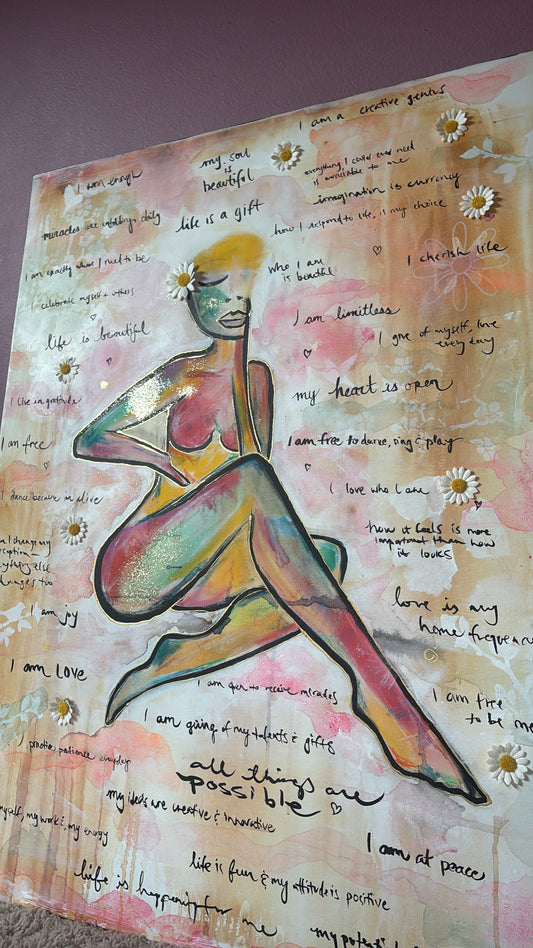 I am a creative genius
I am enough
my soul
is
beautiful
everything I could ever need
is available to me
imagination is currency
miracles are unfolding daily
life is a gift
how I respond to life, is my choice
I am exactly where I need to be
who I am
is beautiful
I cherish life
I celebrate myself + others
I am limitless
life is beautiful
I give of myself, love
every day
my heart is open
I live in gratitude
I am free
I am free to dance, sing & play
I love who I am
I dance because I'm alive
how it feels is more
important than how
it looks
I change my
else
changes too
love is my
home frequency
I am joy
I am love
I am open to receive miracles
I am free
to be me
I am giving of my talents & gifts
I practice patience everyday
all things are
possible
my ideas are creative & innovative
myself, my work &, my energy
I am at peace
life is fun & my attitude is positive
life is happening for me
my